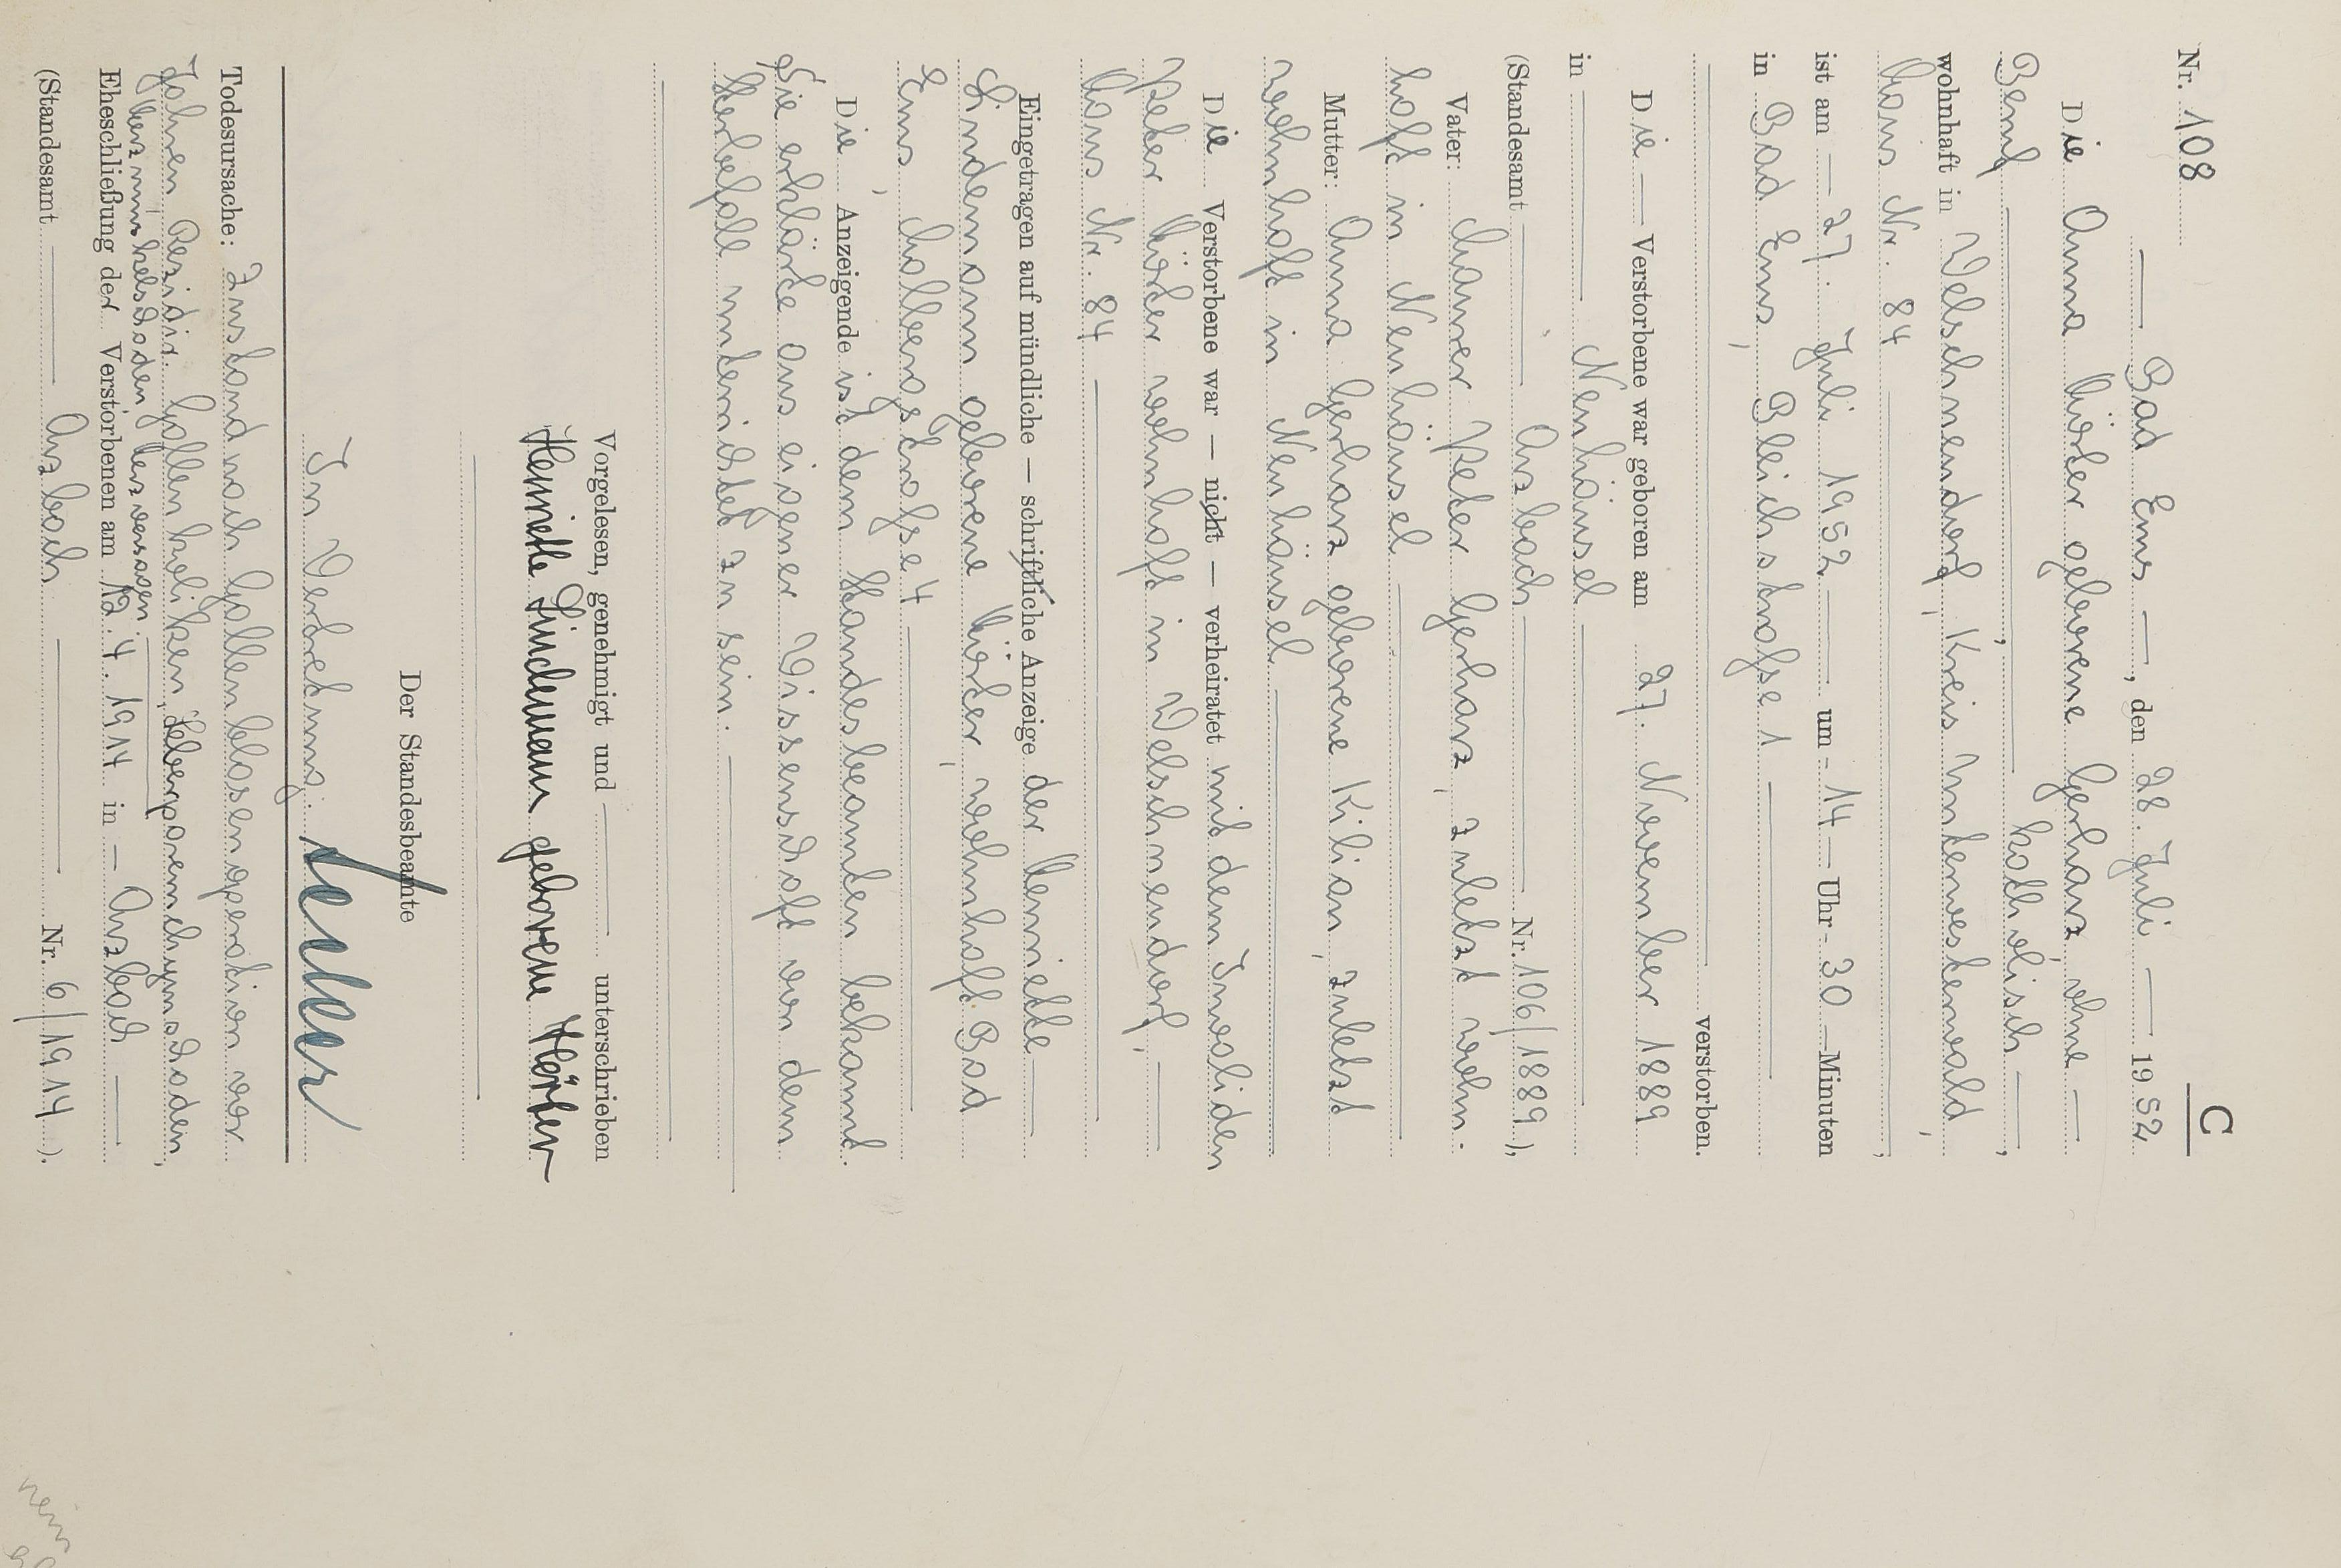 C
Nr. 108
— Bad Ems —, den 28. Juli — 1952
Die Anna Hörter geborene Gerharz, ohne —
Beruf —, katholisch —,
wohnhaft in Welschneudorf, Kreis Unterwesterwald,
Haus Nr. 84 —,
ist am — 27. Juli 1952 — um - 14 — Uhr - 30 — Minuten
in Bad Ems, Bleichstraße 1 —
— verstorben.
Die — Verstorbene war geboren am 27. November 1889
in — Neuhäusel —
(Standesamt — Arzbach — Nr. 106/1889),
Vater: Maurer Peter Gerharz, zuletzt wohn-
haft in Neuhäusel —
Mutter: Anna Gerharz geborene Kilian, zuletzt
wohnhaft in Neuhäusel —
Die Verstorbene war — nicht — verheiratet mit dem Invaliden
Peter Hörter wohnhaft in Welschneudorf, —
Haus Nr. 84 —
Eingetragen auf mündliche — schriftliche Anzeige der Henriette —
Lindemann geborene Hörter, wohnhaft Bad
Ems, Kolbergstraße 4 —
Die Anzeigende ist dem Standesbeamten bekannt.
Sie erklärte aus eigener Wissenschaft von dem
Sterbefall unterrichtet zu sein. —
Vorgelesen, genehmigt und — unterschrieben
Henriette Lindemann geborene Hörter
Der Standesbeamte
In Vertretung:
Todesursache: Zustand nach Gallenblasenoperation vor
Jahren, Rezidiv. Gallenkoliken, Leberparenchymschaden,
Herzmuskelschaden, Herzversagen. —
Eheschließung der Verstorbenen am 12. 4. 1914 in — Arzbach —
(Standesamt — Arzbach — Nr. 6/1914).
nein